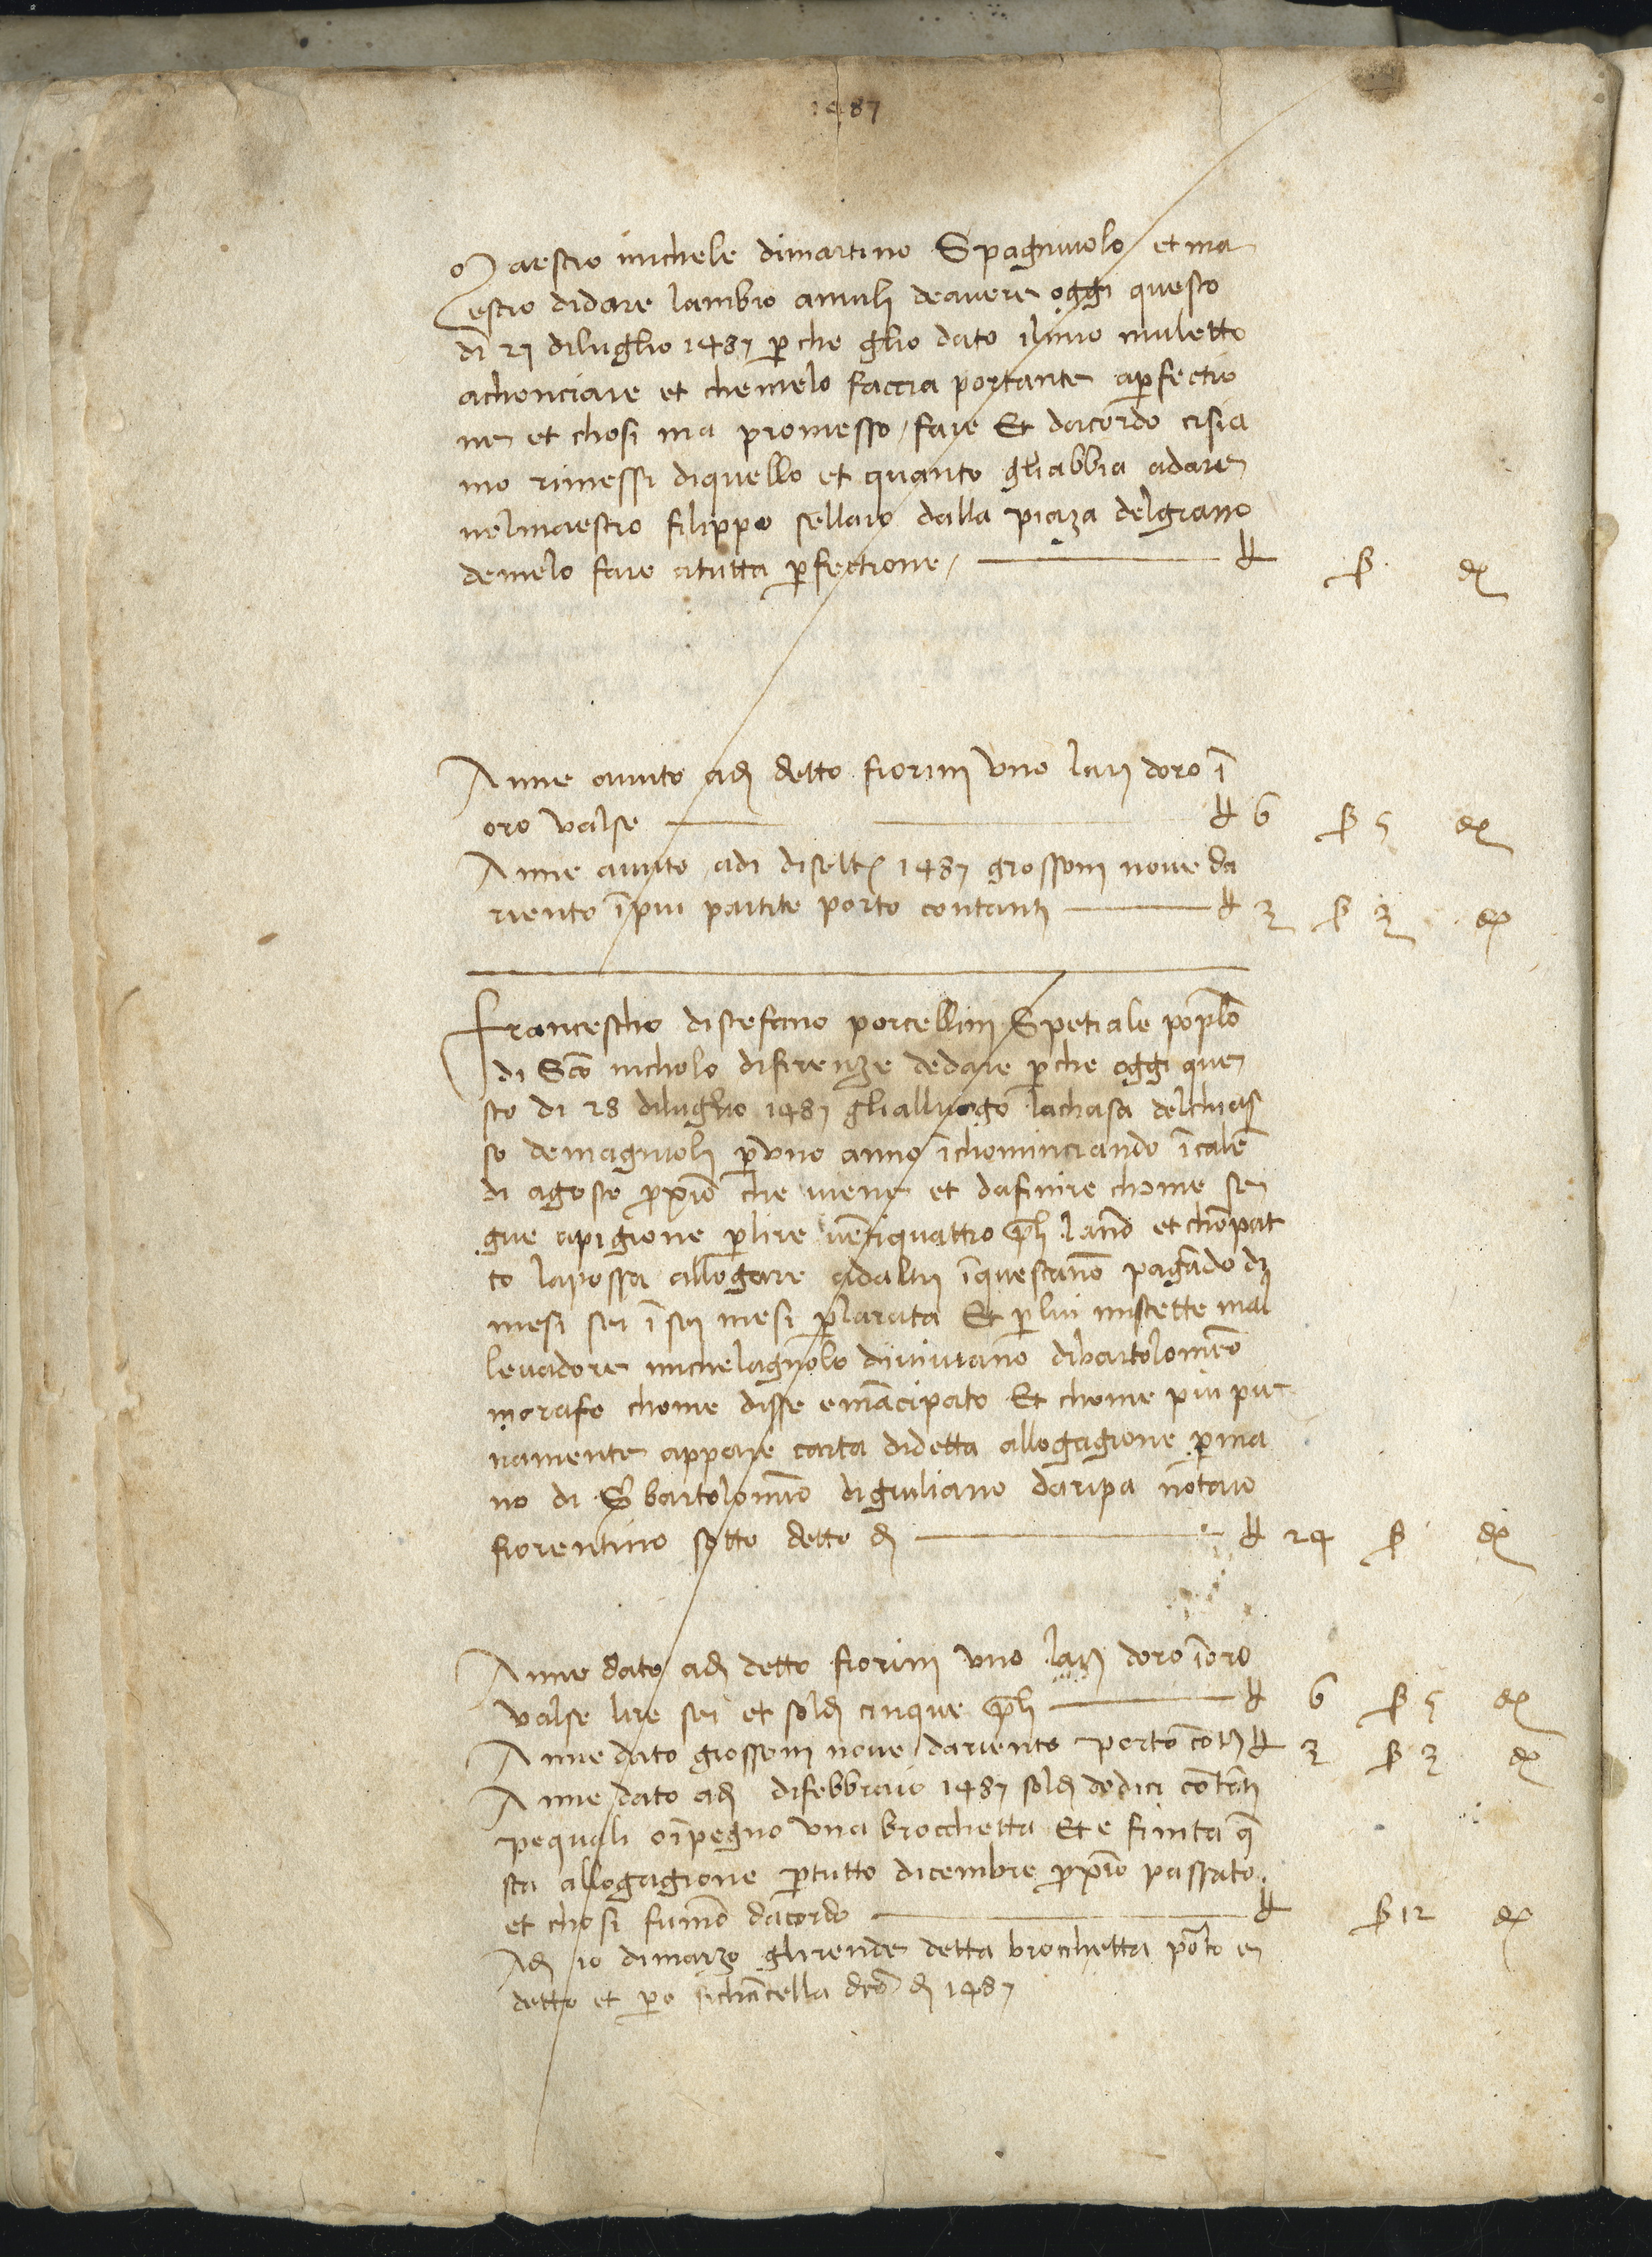 1487
Maestro michele dimartino Spagniuolo et ma
estro didare lambio amuli deavere oggi questo
di 27 diluglio 1487 p̄ che glio dato ilmio muletto
achonciare et chemelo faccia portante ap̄fectio
ne et chosi ma promesso / fare Et dacordo cisia
mo rimessi diquello et quanto gliabbia adare
nelmaestro filippo sellaio dalla piaza delgrano
demelo fare atutta p̄fectione / ₶ ß đ
Anne auuto adj detto fiorini uno larj doro ī
oro valse ₶ 6 ß 5 đ
Anne auuto adi disette 1487 grossoni noue da
riento ī piu partite porto contanti ₶ 3 ß 3 đ
Francescho distefano porcellini Spetiale poplō
di Scō nicholo difirenze dedare p̄che oggi que
sto di 28 diluglio 1487 glialluogo lachasa delchias
so demagnioli p̄ uno anno īchominciando īcalē
di agosto p̄xīo che uiene et dafinire chome se
gue apigione p̄ lire uētiquattro p̄li lanō et chōpat
to lapossa allogare adaltri īquestanō pagādo di
mesi sei ī sei mesi p̄ larata Et p̄ lui miscette mal
levadore michelagnolo diuiuiano dibartolomeo
morafe chome disse emācipato Et chome piu pie
namente appare carta didetta allogagione p̄ ma
no di S̄ bartolomeo digiuliano daripa notaio
fiorentino sotto detto dj ₶ 24 ß đ
Anne dato adj detto fiorini uno larj doro īoro
valse lire sei et soldj cinque p̄li ₶ 6 ß 5 đ
Anne dato grossoni noue dariento porto cōtj ₶ 3 ß 3 đ
Anne dato adj difebbraio 1487 soldj dodici contāti
pequali oīpegno una brocchetta Et e finita q̄
sta allogagione p̄ tutto dicembre p̄xīo passato
et chosi fumō dacordo ₶ ß 12 đ
Adj 10 dimarzo glirende detta brocchetta porto e
detto et p̄o sichācella dcō dj 1487